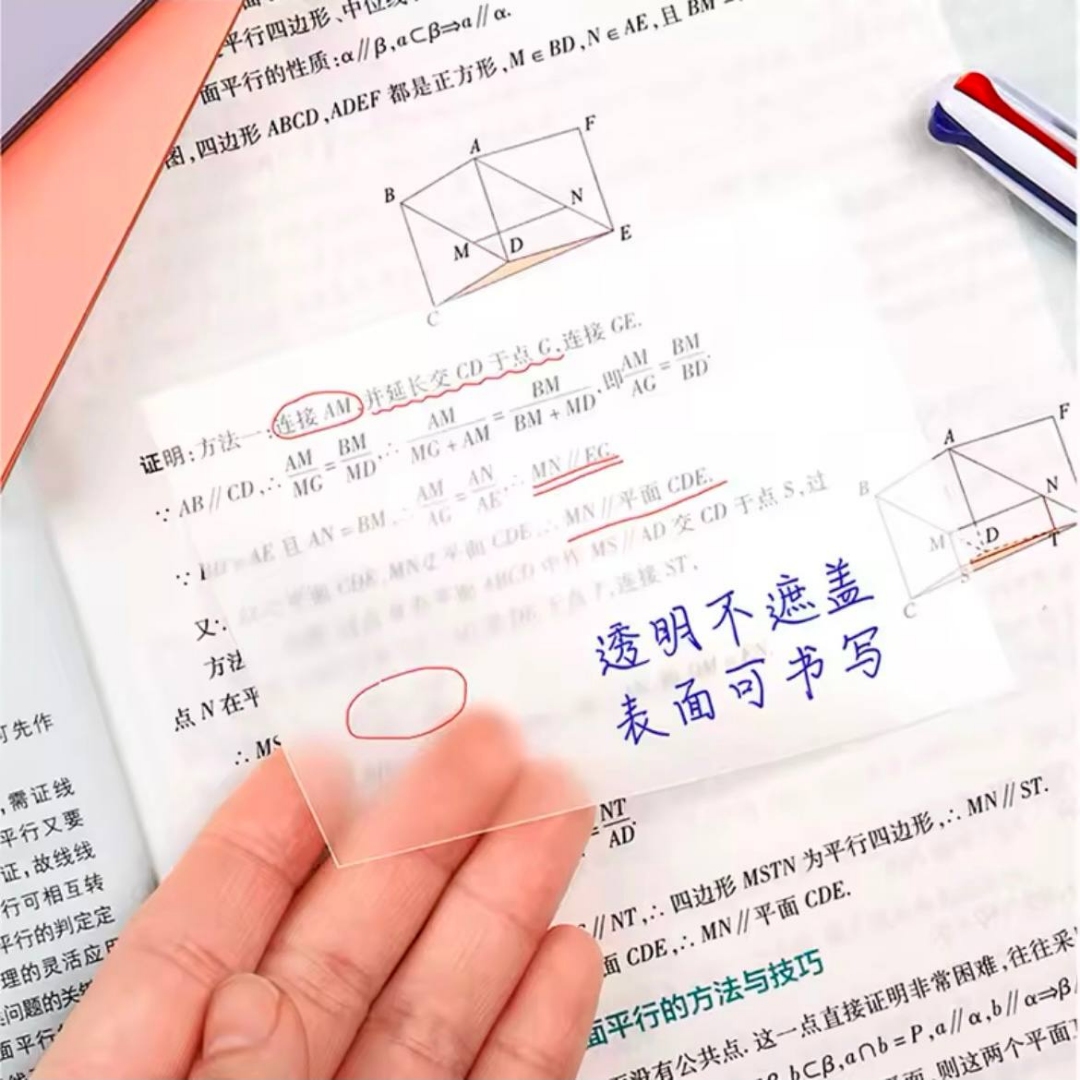 平行四边形、中位线
面平行的性质:α∥β,a⊂β⇒a∥α.
图,四边形 ABCD,ADEF 都是正方形,M∈BD,N∈AE,且 BM
A
F
B
N
M
D
E
C
证明:方法一:连接 AM,并延长交 CD 于点 G,连接 GE.
∵ AB∥CD,∴ AM/MG = BM/MD,∴ AM/(MG + AM) = BM/(BM + MD),即 AM/AG = BM/BD.
= AE 且 AN = BM,∴ AM/AG = AN/AE,∴ MN∥EG.
又: 平面 CDE,MN⊄平面 CDE,∴ MN∥平面 CDE.
方法 ABCD 中作 MS∥AD 交 CD 于点 S,过
点 N 在平 连接 ST,
∴ MS
A
F
B
N
M
D
S
T
C
透明不遮盖
表面可书写
= NT/AD.
∥NT,∴ 四边形 MSTN 为平行四边形,∴ MN∥ST.
面 CDE,∴ MN∥平面 CDE.
面平行的方法与技巧
没有公共点.这一点直接证明非常困难,往往采
b⊂β,a∩b=P,a∥α,b∥α⇒β∥
则这两个平面
可先作
,需证线
平行又要
证,故线线
行可相互转
平行的判定定
理的灵活应用
问题的关键
面平行